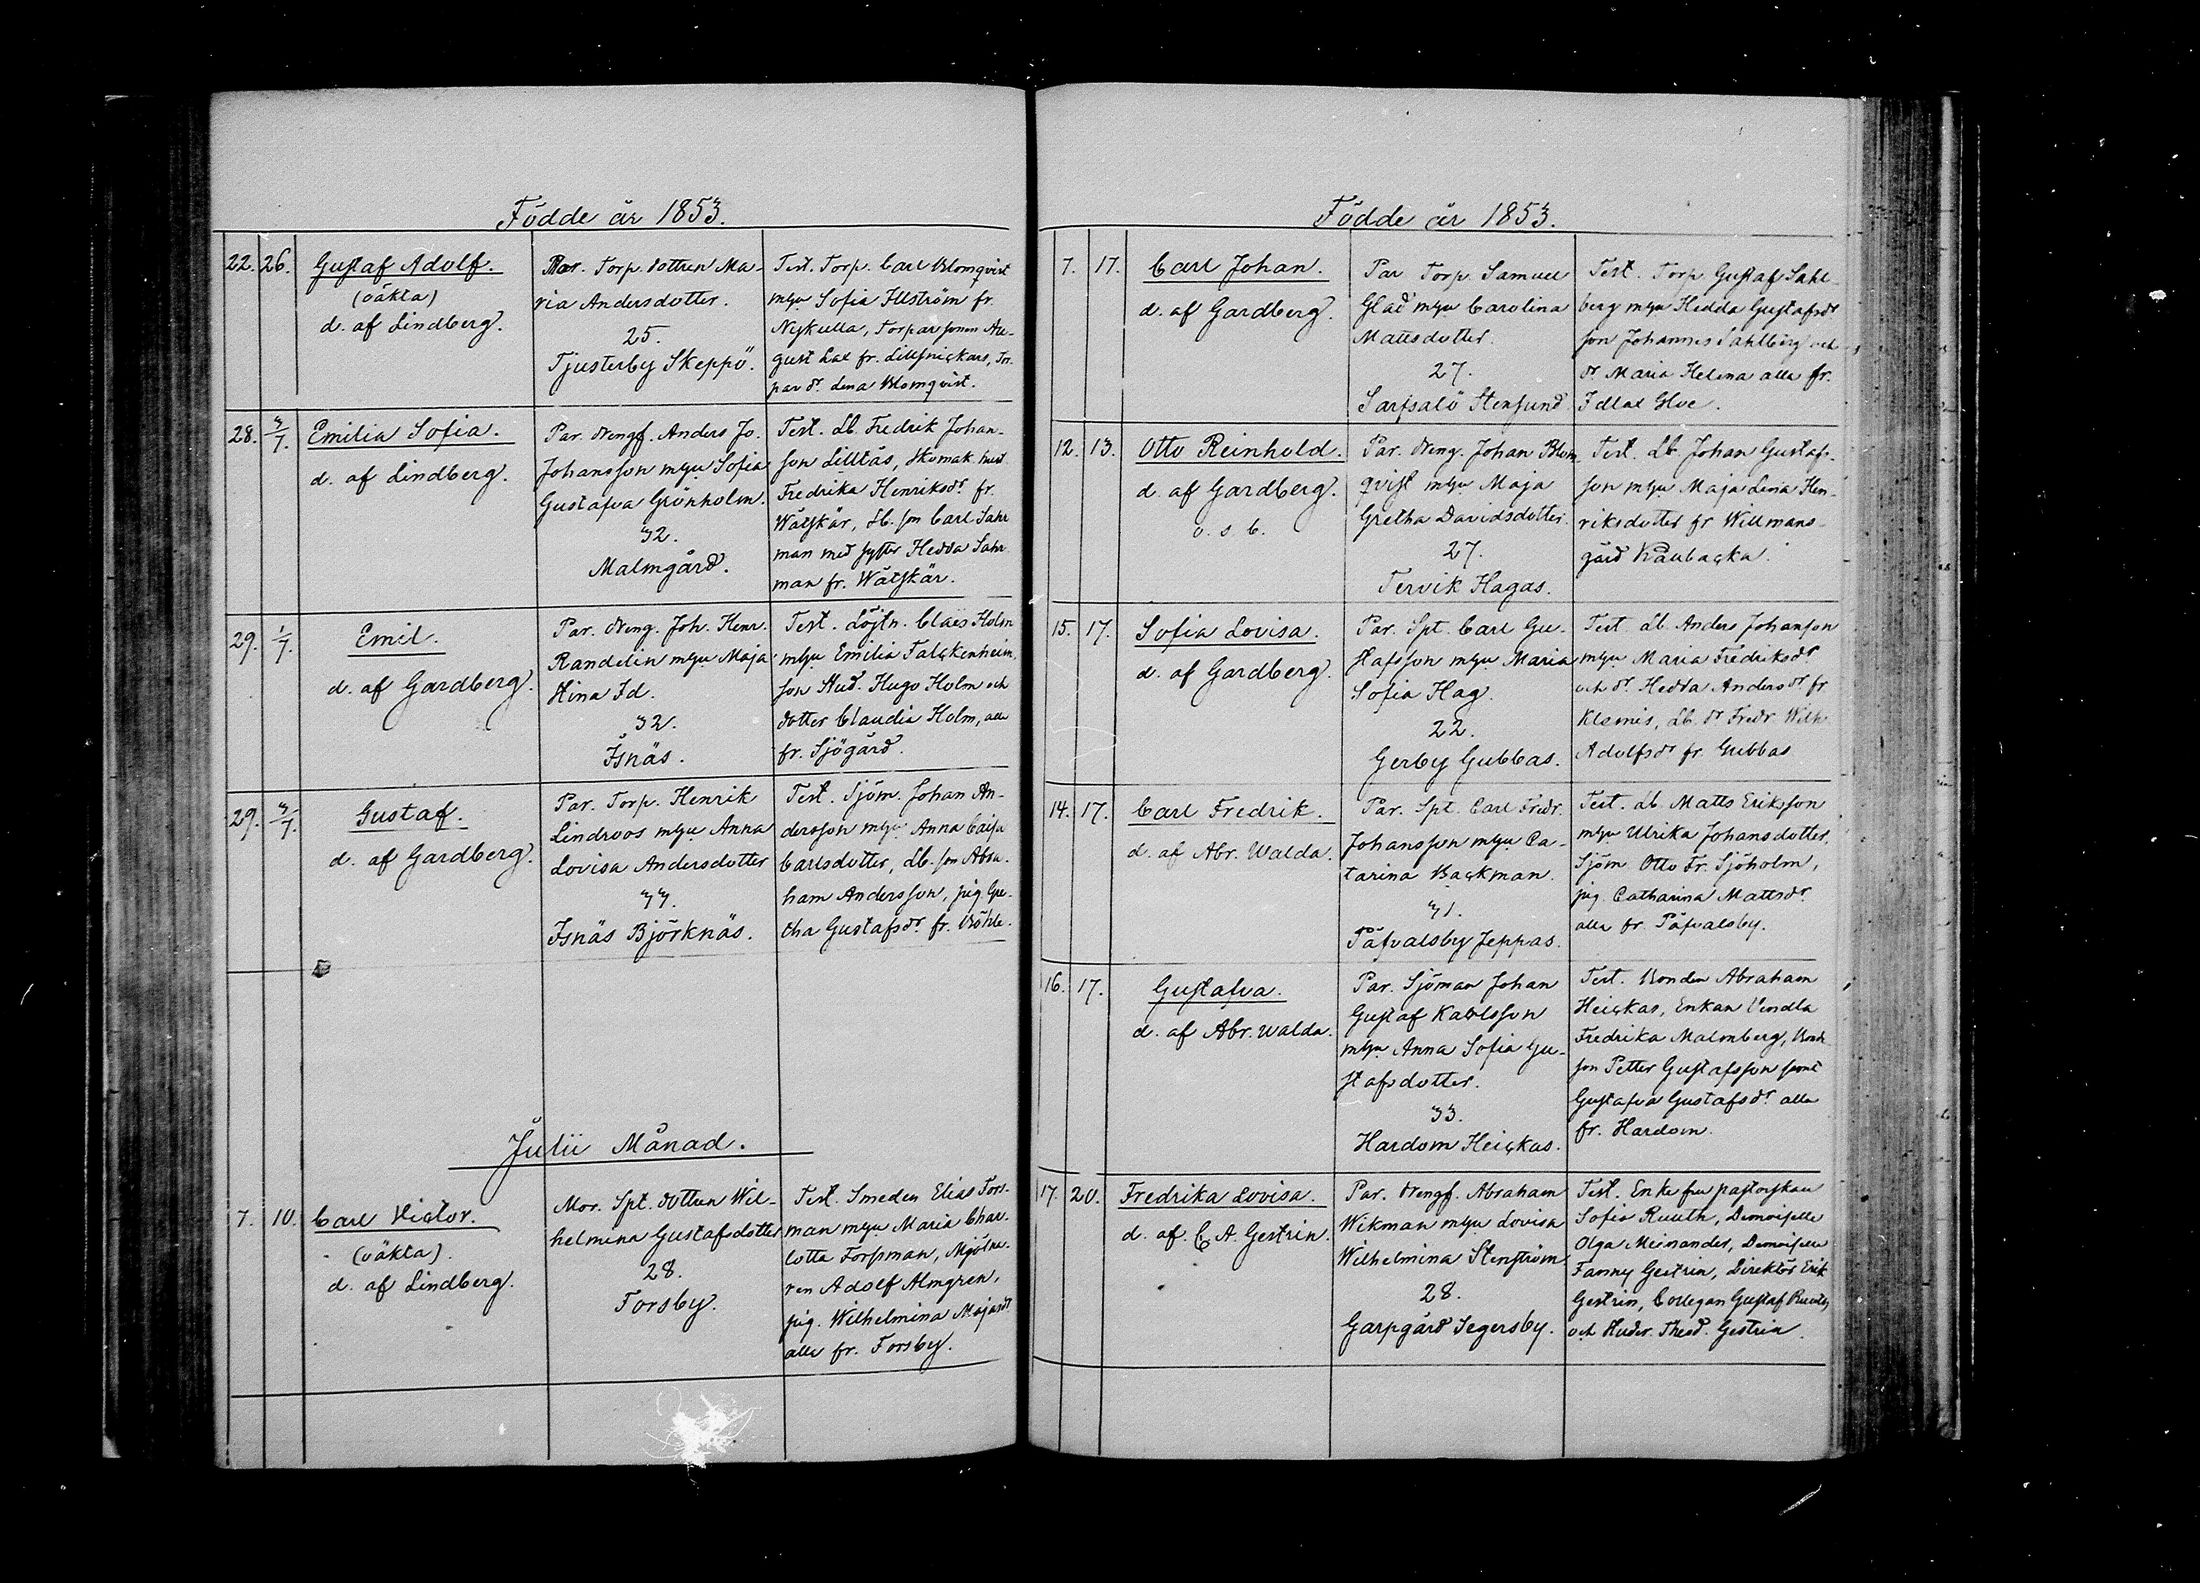 Födde år 1853.
22. 26. Gustaf Adolf.
(oäkta)
d. af Lindberg.
Mor. Torp. dottren Ma-
ria Andersdotter.
25.
Tjusterby Skeppö.
Test. Torp. Carl Blomqvist
mhu Sofia Illström fr.
Nykulla, Torparsonen Au-
gust Lax fr. Lillsnickars, Tor-
par dr. Lena Blomqvist.
28. 3/7. Emilia Sofia.
d. af Lindberg.
Par. Drengf. Anders Jo.
Johansson mhu Sofia
Gustafva Grönholm.
32.
Malmgård.
Test. Lb. Fredrik Johan-
son Lilltås, Skomak. hust.
Fredrika Henriksdr. fr.
Wätskär, Lb. son Carl Sahr
man med syster Hedda Sahr
man fr. Wätskär.
29. 1/7. Emil.
d. af Gardberg.
Par. Dreng. Joh. Henr.
Randelin mhu Maja
Stina Id.
32.
Isnäs.
Test. Löjtn. Claës Holm
mhu Emilia Falckenheim,
son Stud. Hugo Holm och
dotter Claudia Holm, alla
fr. Sjögård.
29. 3/7. Gustaf.
d. af Gardberg.
Par. Torp. Henrik
Lindroos mhu Anna
Lovisa Andersdotter
33.
Isnäs Björknäs.
Test. Sjöm. Johan An-
dersson mhu Anna Caisa
Carlsdotter, Lb. son Abra-
ham Andersson, pig. Gre-
tha Gustafsdr. fr. Böhle.
Julii Månad.
7. 10. Carl Victor.
(oäkta).
d. af Lindberg.
Mor. Spt. dottren Wil-
helmina Gustafsdotter
28.
Forsby.
Test. Smeden Elias Fors-
man mhu Maria Char-
lotta Forssman, Mjölna-
ren Adolf Almgren,
pig. Wilhelmina Majasdr
alla fr. Forsby.
Födde år 1853.
7. 17. Carl Johan.
d. af Gardberg.
Par Torp. Samuel
Glad mhu Carolina
Mattsdotter.
27.
Sarfsalö Stensund
Test. Torp. Gustaf Sahl-
berg mhu Hedda Gustafsdr
son Johannes Sahlberg och
dr. Maria Helena alla fr.
12. 13. Otto Reinhold.
d. af Gardberg.
o. s. b.
Par. Dreng. Johan Blom
qvist mhu Maja
Gretha Davidsdotter.
27.
Tervik Hagas.
Test. Lb. Johan Gustafs-
son mhu Maja Lena Hen-
riksdotter fr Willmans-
gård Kaubacka.
15. 17. Sofia Lovisa.
d. af Gardberg.
Par. Spt. Carl Gu-
stafsson mhu Maria
Sofia Hag.
22.
Gerby Gubbas.
Test Lb. Anders Johanson
mhu Maria Fredriksdr
och dr. Hedda Andersdr. fr.
Klemis, Lb. dr Fredr. Wilh.
Adolfsdr fr. Gubbas
14. 17. Carl Fredrik.
d. af Abr. Walda.
Par. Spt. Carl Fredr.
Johansson mhu Ca-
tarina Backman.
31.
Påfvalsby Jeppas.
Test. Lb. Matts Eriksson
mhu Ulrika Johansdotter,
Sjöm. Otto Fr. Sjöholm,
pig. Catharina Mattsdr.
alla fr. Påfvalsby.
16. 17. Gustafva.
d. af Abr. Walda.
Par. Sjöman Johan
Gustaf Karlsson
mhu Anna Sofia Gu-
stafsdotter.
33.
Hardom Heickas.
Test. Bonden Abraham
Heickas, Enkan Vendla
Fredrika Malmberg, Bond.
son Petter Gustafsson samt
Gustafva Gustafsdr. alla
fr. Hardom.
17. 20. Fredrika Lovisa.
d. af. C. A. Gestrin.
Par. Drengf. Abraham
Wikman mhu Lovisa
Wilhelmina Stenström.
28.
Garpgård Segersby.
Test. Enkefru pastorskan
Sofia Ruuth, Demoiselle
Olga Meinander, Demoiselle
Fanny Gestrin, Direktör Erik
Gestrin, Collegan Gustaf Ruuth
och Studer. Theod. Gestrin.